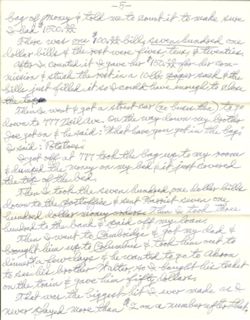 - 5 -
bag of money & told me to count it to make sure
I had 1500.00
There was one $100.00 bill, seven hundred one
dollar bills & the rest were fives tens & twenties
After I counted it I gave her $150.00 for her com-
mission & stuck the rest in a 10 lb. paper sack & the
bills just filled it so I could have enough to close
the top
Then I went & got a street car (no buses then) to go
down to 777 Neil Ave. On the way down my brother
got on & he said: "What have you got in the bag"
I said: "Potatoes"
I got off at 777 took the bag up to my room
& dumped the money on my bed & it just covered
the top of the bed.
Then I took the seven hundred one dollar bills
down to the Postoffice & sent one
hundred dollar money orders then I took three
hundred to the bank & paid off my loan
Then I went to Cambridge & got my dad &
brought him up to Columbus & took him out to
dinner a few days & he wanted to go to Akron
to see his brother so I bought his ticket
on the train & gave him fifty dollars.
That was the biggest hit I ever made as I
never played more than on a number after that